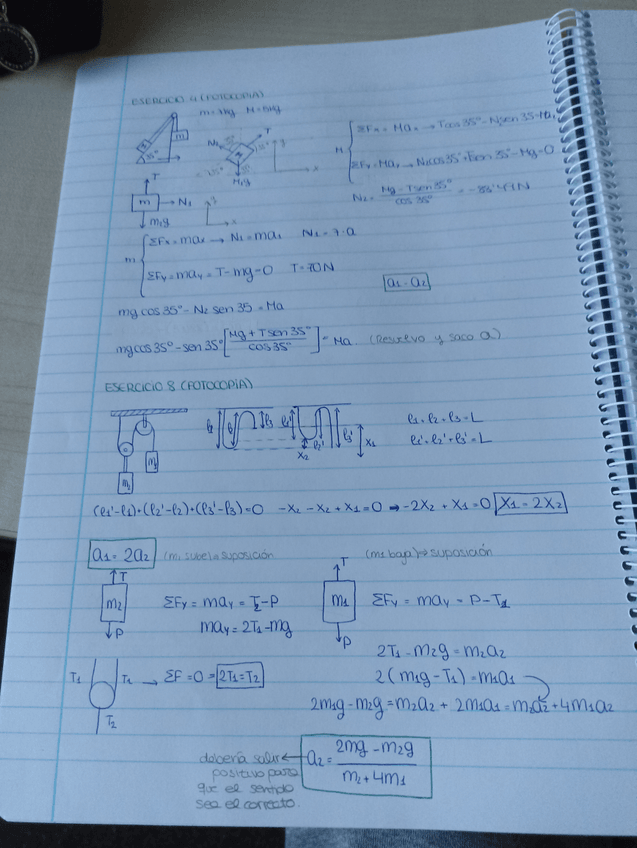 EJERCICIO 4 (FOTOCOPIA)
M=5Kg
T
N₂
35°
y
x
M₂g
M
ΣFₓ = Maₓ → Tcos35° - N₂sen35=Ma₁
ΣFy = May →
- Mg=0
N₂ = Mg - Tsen35° / cos35°
T
m → N₁
m₁g
y
x
m
ΣFx = max → N₁ = ma₁ N₁ = 7·a
ΣFy = may = T - mg = 0 T = 70N
a₁ = a₂
mg cos 35° - N₂ sen 35 = Ma
mg cos 35° - sen 35° [Mg + Tsen 35° / cos 35°] = Ma (Resuelvo y saco a)
EJERCICIO 8 (FOTOCOPIA)
ℓ₁ + ℓ₂ + ℓ₃ = L
ℓ₁' + ℓ₂' + ℓ₃' = L
ℓ₂ ℓ₃ ℓ₁' ℓ₂' ℓ₃' x₁
x₂
(ℓ₁'-ℓ₁)+(ℓ₂'-ℓ₂)+(ℓ₃'-ℓ₃)=0 -x₂ - x₂ + x₁ = 0 → -2x₂ + x₁ = 0 x₁ = 2x₂
a₁ = 2a₂ suposición
(m₁ baja) → suposición
T
m₂
P
ΣFy = may = T₂ - P
may = 2T₁ - mg
T
m₁
P
ΣFy = may = P - T₁
2T₁ - m₂g = m₂a₂
T₁ T₁ → ΣF = 0 = 2T₁ = T₂
T₂
2(m₁g - T₁) = m₁a₁
2m₁g - m₂g = m₂a₂ + 2m₁a₁ = m₂a₂ + 4m₁a₂
debería salir
positivo para
que el sentido
sea el correcto.
a₂ = 2mg - m₂g / m₂ + 4m₁